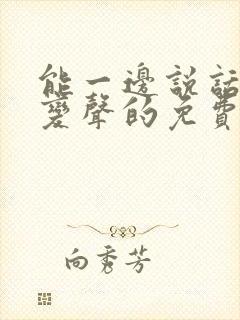 能一邊說話
變聲的免費
向秀芳